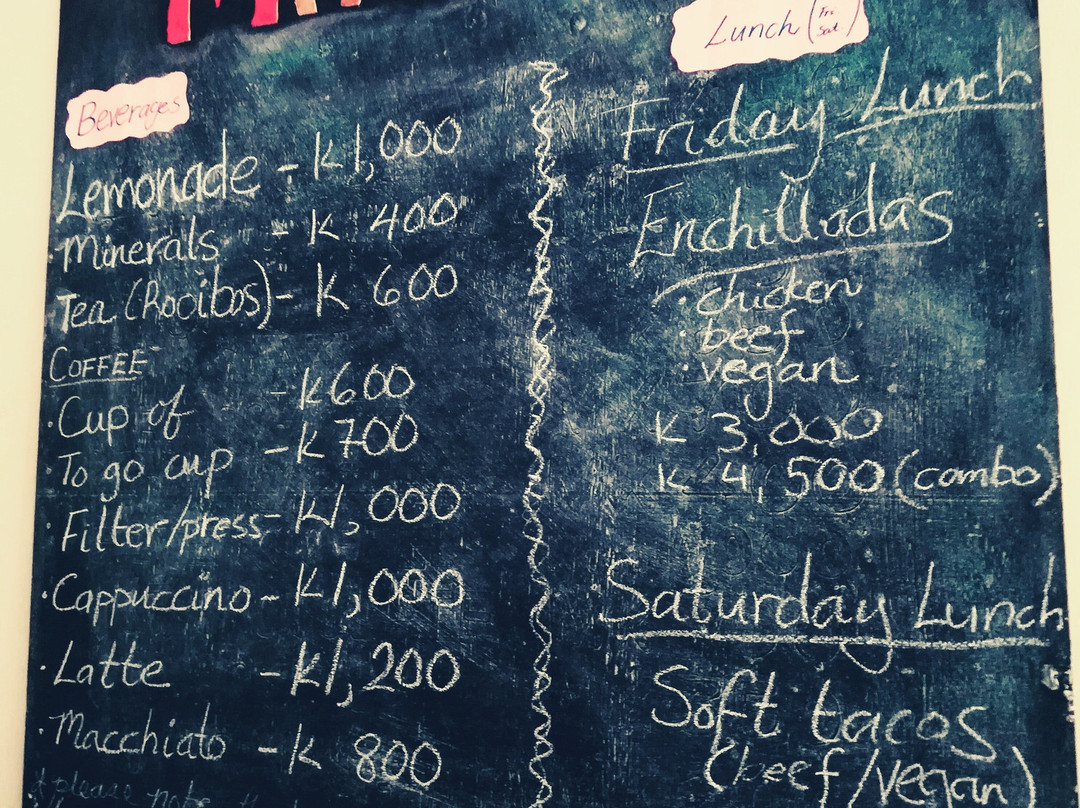 Beverages
Lemonade - K1,000
Minerals - K 400
Tea (Rooibos) - K 600
COFFEE
· Cup of - K600
· To go cup - K 700
· Filter/press - K1,000
· Cappuccino - K1,000
· Latte - K1,200
· Macchiato - K 800
* please note
Lunch (Fri Sat)
Friday Lunch
Enchilladas
· chicken
· beef
· vegan
K 3,000
K 4,500 (combo)
Saturday Lunch
Soft tacos
(beef/vegan)